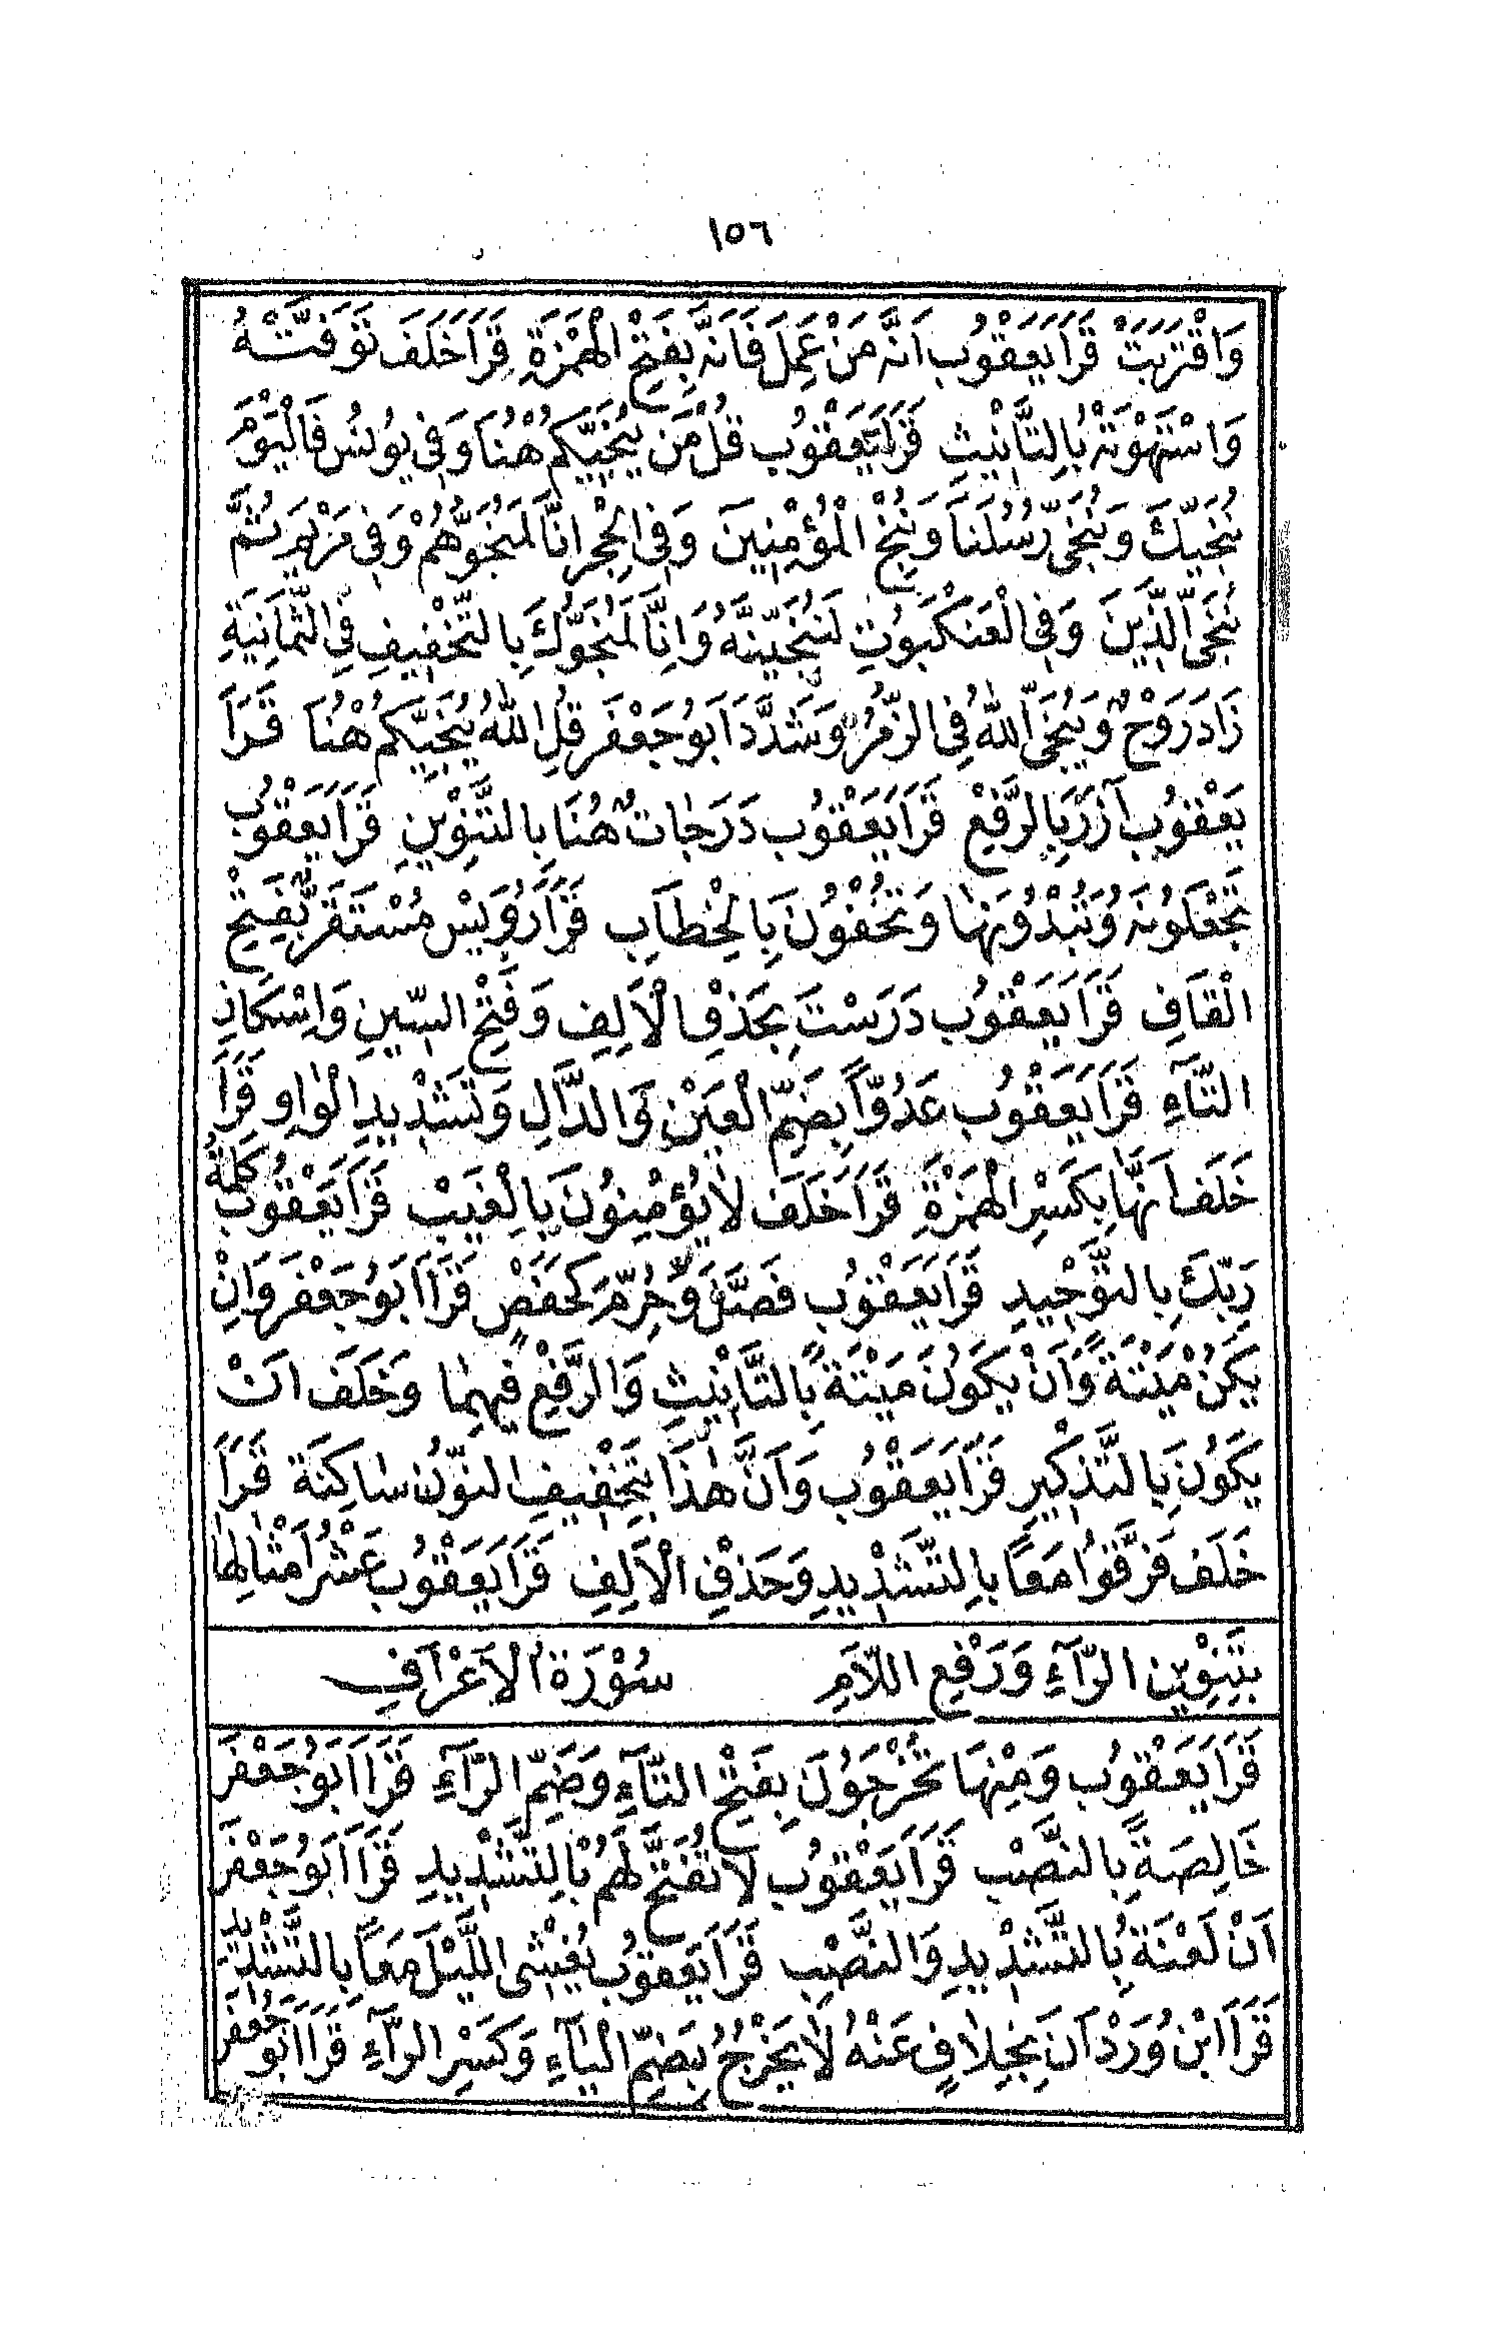 ١٥٦
وَاقْتَرَبَتْ قَرَأَ يَعْقُوبُ اَنَّهُ مَنْ عَمِلَ فَاَنَّهُ بِفَتْحِ الْهَمْزَةِ قَرَأَ خَلَفَ تَوَفَّتْهُ
وَاسْتَهْوَتْهُ بِالتَّأْنِيثِ قَرَأَ يَعْقُوبُ قُلْ مَنْ يُنَجِّيكُمْ هُنَا وَفِى يُونُسَ فَالْيَوْمَ
نُنَجِّيكَ وَنُنَجِّى رُسُلَنَا وَنُنْجِ الْمُؤْمِنِينَ وَفِى الْحِجْرِ اِنَّا لَمُنَجُّوهُمْ وَفِى مَرْيَمَ ثُمَّ
نُنَجِّى الَّذِينَ وَفِى الْعَنْكَبُوتِ لَنُنَجِّيَنَّهُ وَاِنَّا لَمُنَجُّوكَ بِالتَّخْفِيفِ فِى الثَّمَانِيَةِ
زَادَ رَوْحٌ وَيُنَجِّى اللّٰهُ فِى الزُّمَرِ وَشَدَّدَ اَبُو جَعْفَرَ قُلِ اللّٰهُ يُنَجِّيكُمْ هُنَا قَرَأَ
يَعْقُوبُ آزَرُ بِالرَّفْعِ قَرَأَ يَعْقُوبُ دَرَجَاتٍ هُنَا بِالتَّنْوِينِ قَرَأَ يَعْقُوبُ
تَجْعَلُونَهُ وَتُبْدُونَهَا وَتُخْفُونَ بِالْخِطَابِ قَرَأَ رُوَيْسٌ مُسْتَقَرٌّ بِفَتْحِ
الْقَافِ قَرَأَ يَعْقُوبُ دَرَسَتْ بِحَذْفِ الْاَلِفِ وَفَتْحِ السِّينِ وَاِسْكَانِ
التَّآءِ قَرَأَ يَعْقُوبُ عَدُوًّا بِضَمِّ الْعَيْنِ وَالدَّالِ وَتَشْدِيدِ الْوَاوِ قَرَأَ
خَلَفَ اَنَّهَا بِكَسْرِ الْهَمْزَةِ قَرَأَ خَلَفَ لَا يُؤْمِنُونَ بِالْغَيْبِ قَرَأَ يَعْقُوبُ كَلِمَةُ
رَبِّكَ بِالتَّوْحِيدِ قَرَأَ يَعْقُوبُ فَصَّلَ وَحُرِّمَ كَحَفْصٍ قَرَأَ اَبُو جَعْفَرَ وَاِنْ
يَكُنْ مَيْتَةً وَاَنْ يَكُونَ مَيْتَةً بِالتَّأْنِيثِ وَالرَّفْعِ فِيهِمَا وَخَلَفَ اَنْ
يَكُونَ بِالتَّذْكِيرِ قَرَأَ يَعْقُوبُ وَاَنَّ هٰذَا بِتَخْفِيفِ النُّونِ سَاكِنَةً قَرَأَ
خَلَفَ فَرَّقُوا مَعًا بِالتَّشْدِيدِ وَحَذْفِ الْاَلِفِ قَرَأَ يَعْقُوبُ عَشْرُ اَمْثَالِهَا
بِتَنْوِينِ الرَّآءِ وَرَفْعِ اللَّامِ سُورَةُ الْاَعْرَافِ
قَرَأَ يَعْقُوبُ وَمِنْهَا تَخْرُجُونَ بِفَتْحِ التَّآءِ وَضَمِّ الرَّآءِ قَرَأَ اَبُو جَعْفَرَ
خَالِصَةً بِالنَّصْبِ قَرَأَ يَعْقُوبُ لَا تُفَتَّحُ لَهُمْ بِالتَّشْدِيدِ قَرَأَ اَبُو جَعْفَرَ
اَنْ لَعْنَةُ بِالتَّشْدِيدِ وَالنَّصْبِ قَرَأَ يَعْقُوبُ يُغْشِى اللَّيْلَ مَعًا بِالتَّشْدِيدِ
قَرَأَ ابْنُ وَرْدَانَ بِخِلَافٍ عَنْهُ لَا يَخْرُجُ بِضَمِّ الْيَآءِ وَكَسْرِ الرَّآءِ قَرَأَ اَبُو جَعْفَرَ